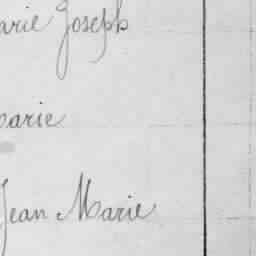 arie Joseph
arie
Jean Marie